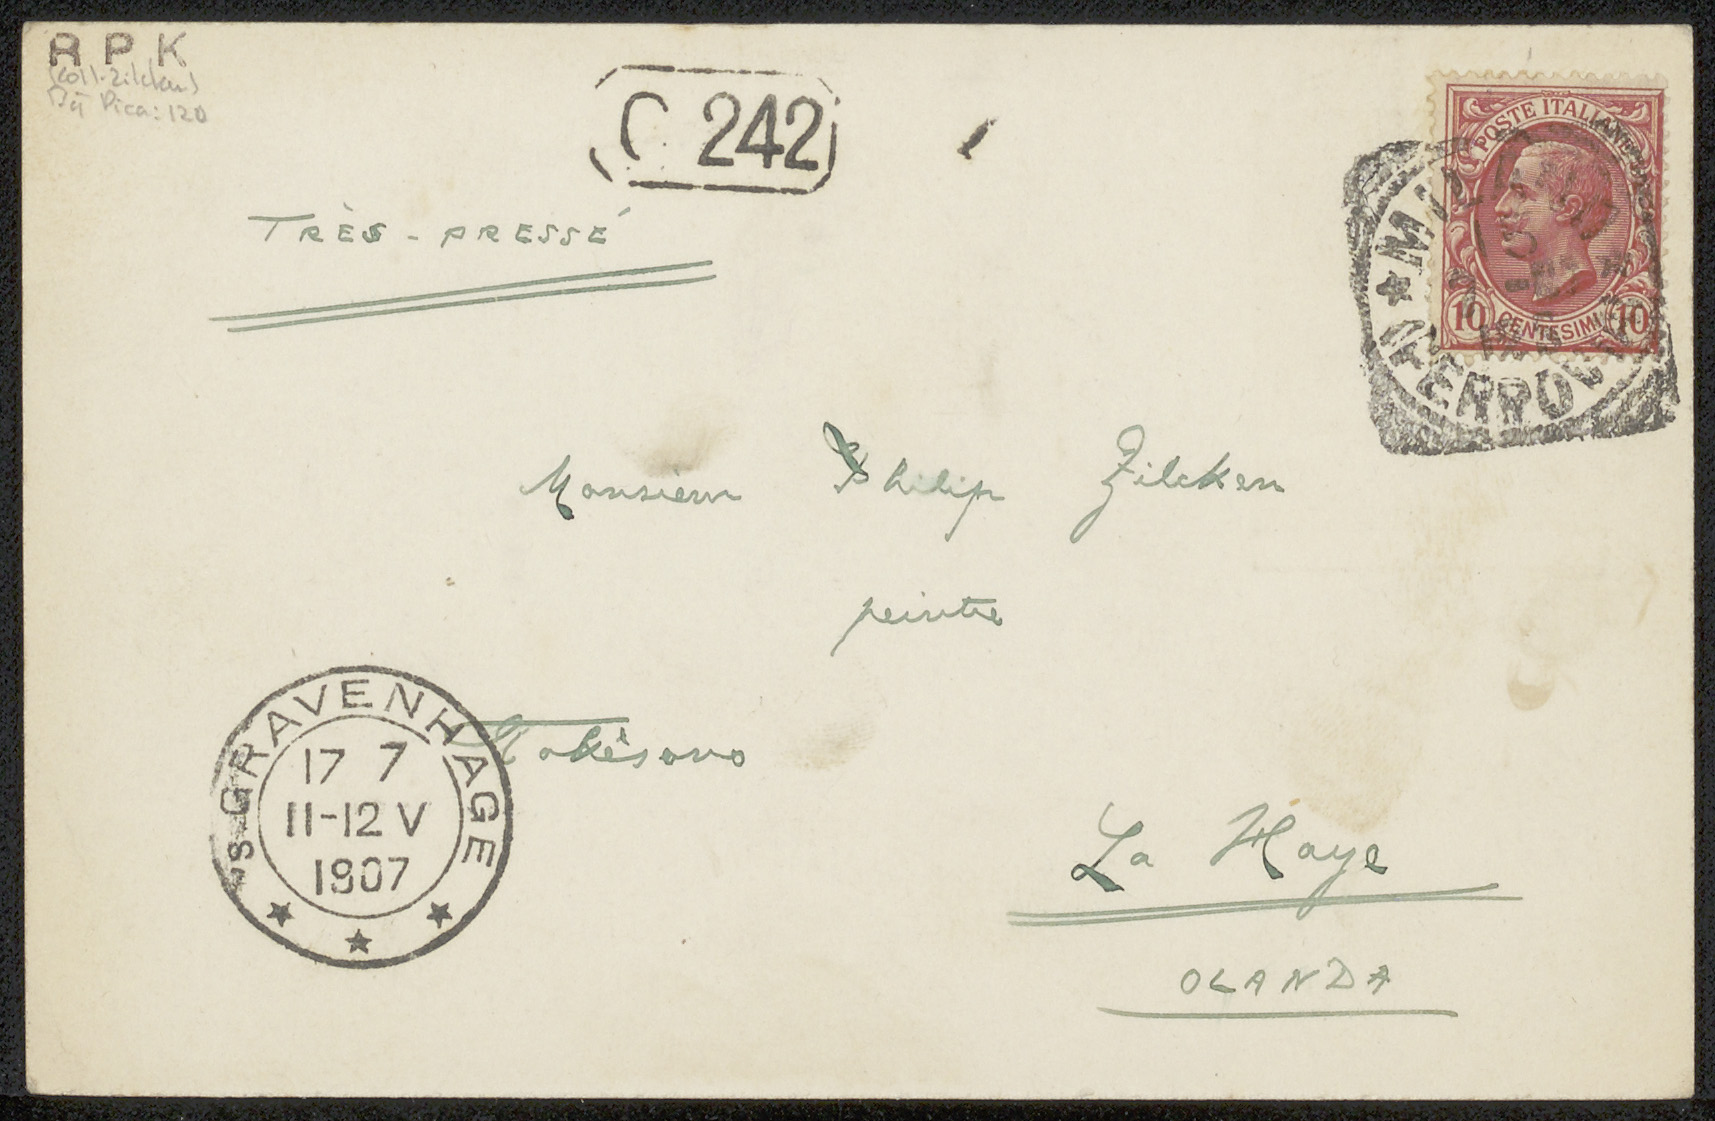 RPK
(Coll. Zilcken)
Bij Pica: 120
C 242
TRÈS-PRESSÉ
POSTE ITALIANE
10 CENTESIMI 10
FERROVIA
Monsieur Philip Zilcken
peintre
's GRAVENHAGE
17 7
11-12 V
1907
La Haye
OLANDA